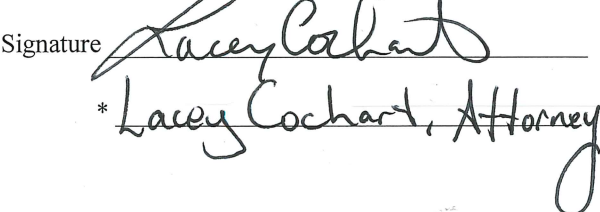 Signature Lacey Cochart
* Lacey Cochart, Attorney